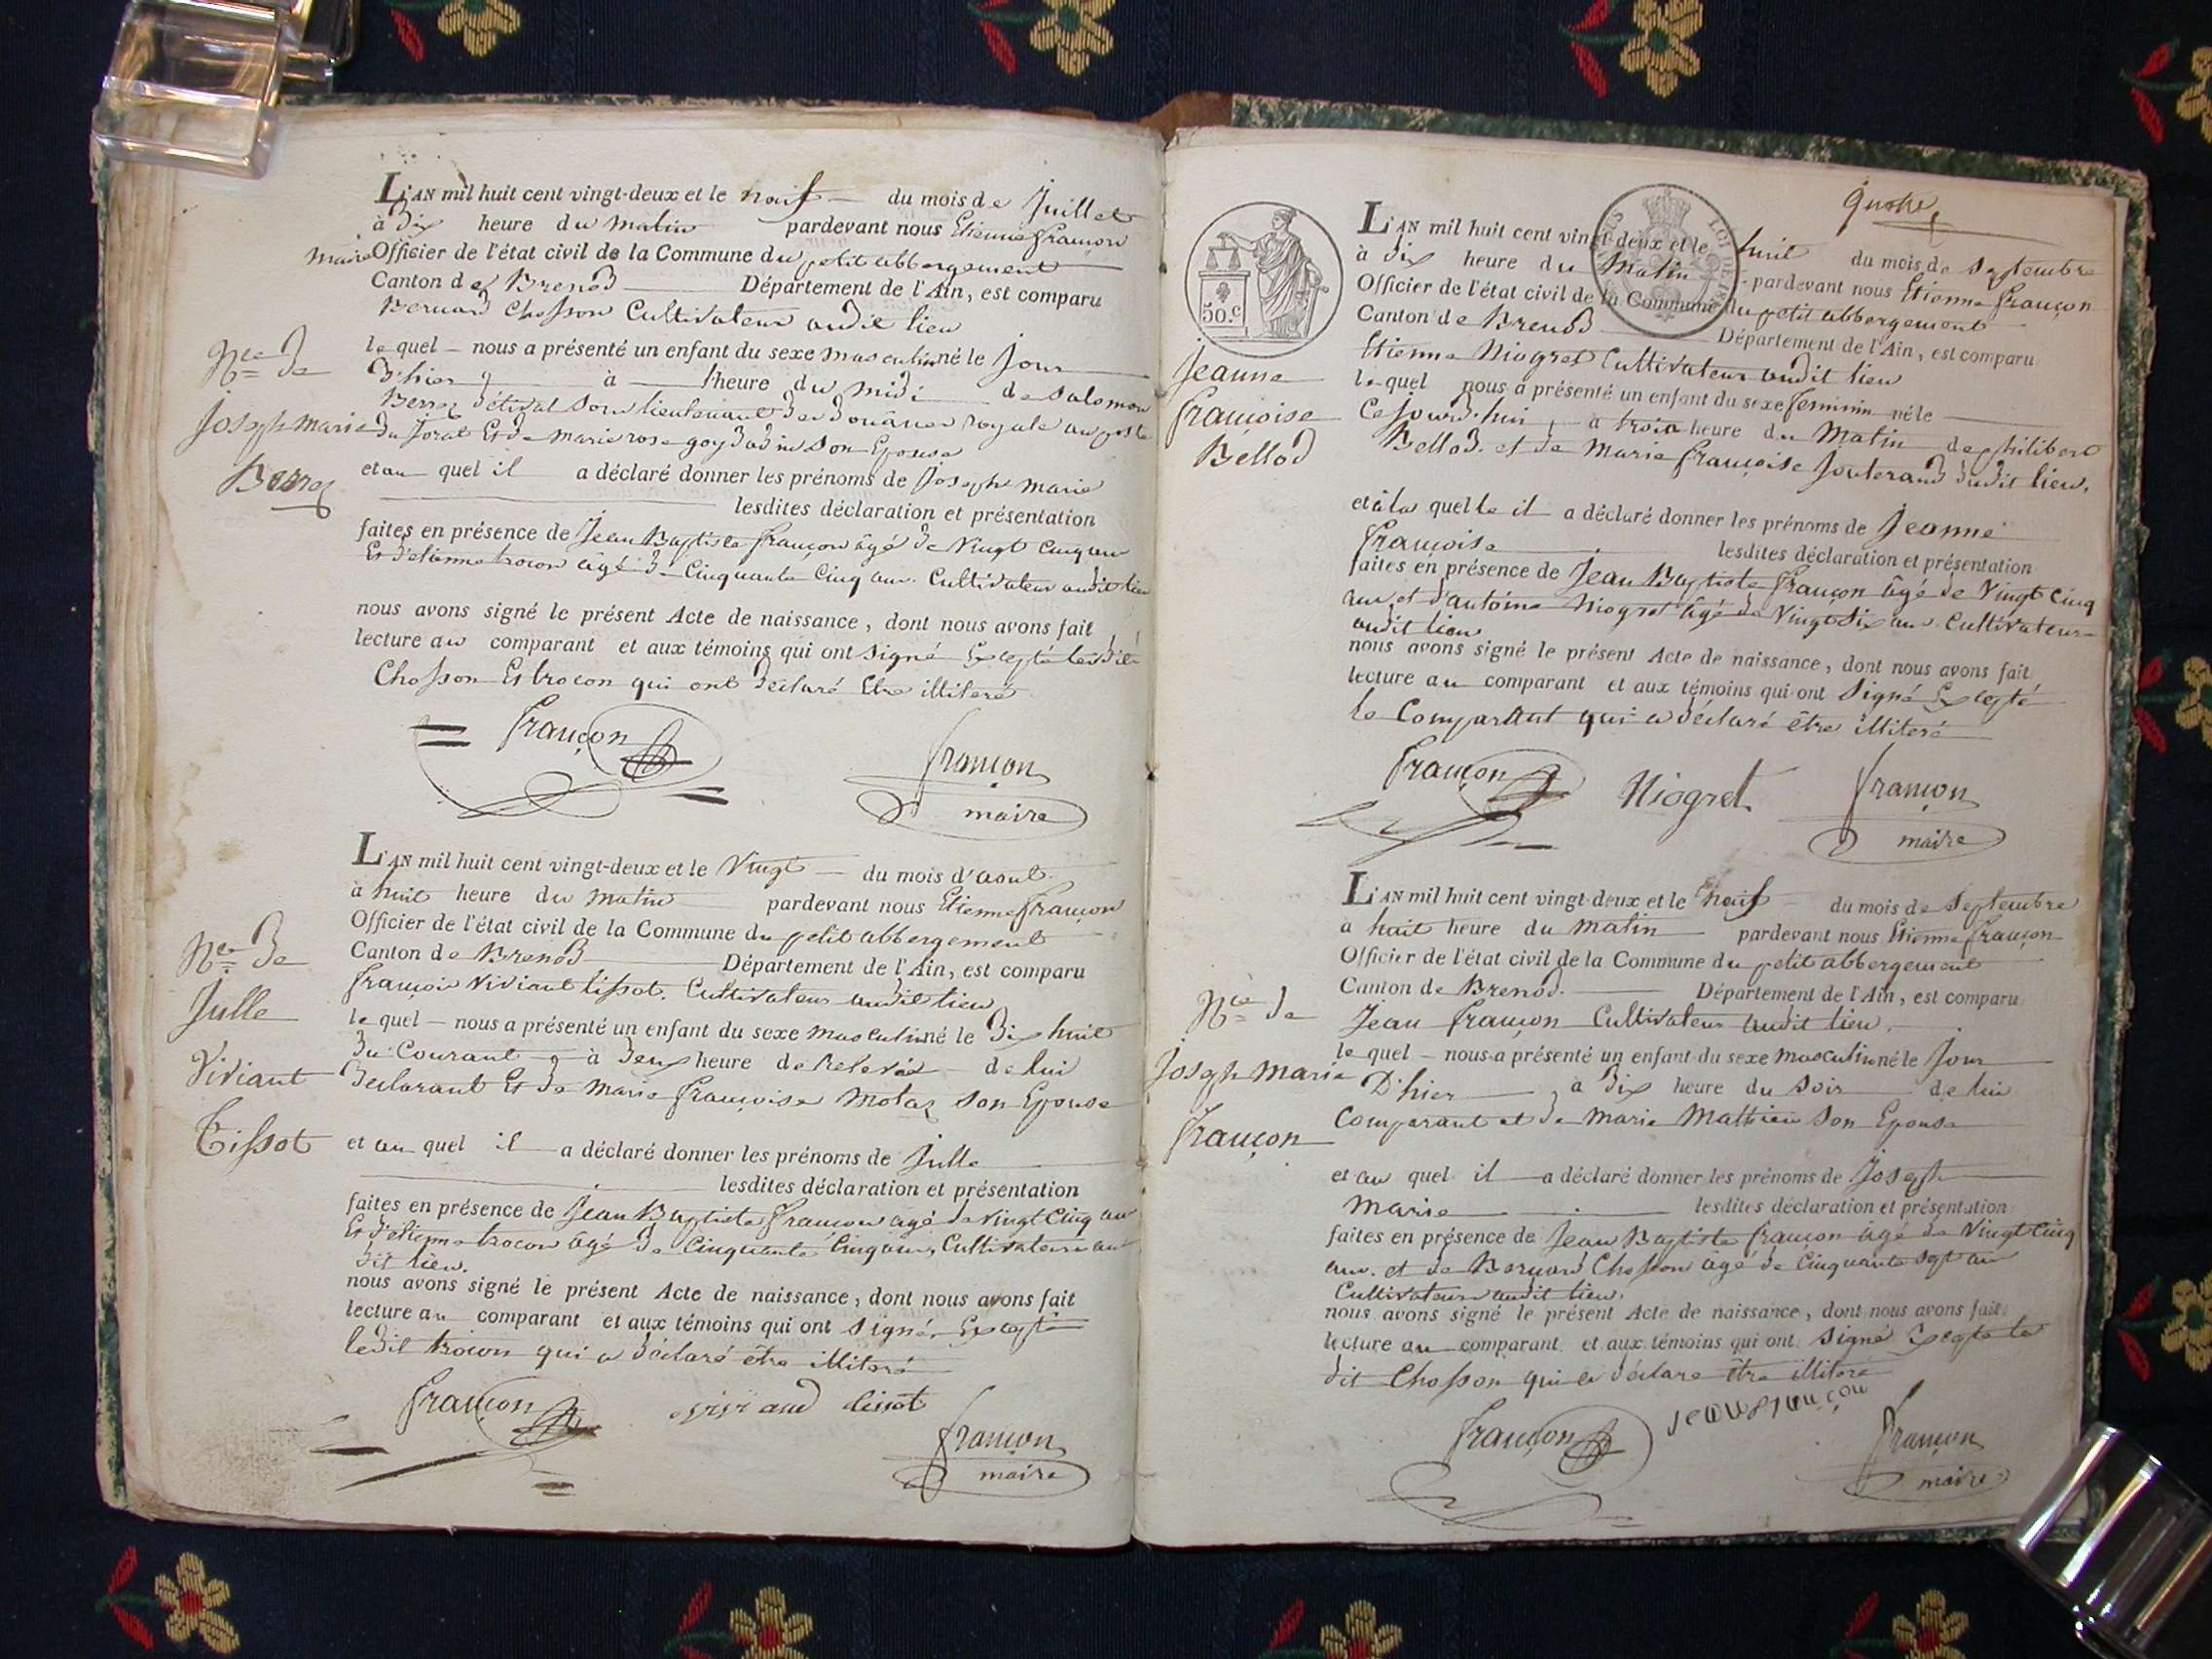 L'AN mil huit cent vingt-deux et le neuf du mois de Juillet
à Dix heure du Matin pardevant nous Etienne françon
maire Officier de l'état civil de la Commune du petit abbergement
Canton de Brenod Département de l'Ain, est comparu
Bernard Chosson Cultivateur audit lieu
le quel nous a présenté un enfant du sexe masculin né le Jour
D'hier à l'heure du midi de Salomon
Berrez sous lieutenant des Douânes royale au poste
du Jorat Et de Marie rose son Epouse
et au quel il a déclaré donner les prénoms de Joseph marie
lesdites déclaration et présentation
faites en présence de Jean Baptiste françon âgé de Vingt Cinq ans
Et d'etienne trocon âgé de Cinquante Cinq ans Cultivateur audit lieu
nous avons signé le présent Acte de naissance, dont nous avons fait
lecture au comparant et aux témoins qui ont signé Excepté lesdits
Chosson Et trocon qui ont déclaré Etre illiteré
françon
françon
maire
Nce de
Joseph marie
Berrez
L'AN mil huit cent vingt-deux et le Vingt du mois d'aoul
à huit heure du Matin pardevant nous Etienne françon
Officier de l'état civil de la Commune du petit abbergement
Canton de Brenod Département de l'Ain, est comparu
françois Viviant tissot. Cultivateur audit lieu
le quel nous a présenté un enfant du sexe masculin né le Dix huit
du Courant à Deux heure de Relevée de lui
Declarant Et de Marie françoise Molaz son Epouse
et au quel il a déclaré donner les prénoms de Julle
lesdites déclaration et présentation
faites en présence de Jean Baptiste françon agé de Vingt Cinq ans
Et d'etienne trocon âgé de Cinquante Cinq ans, Cultivateurs au
dit lieu.
nous avons signé le présent Acte de naissance, dont nous avons fait
lecture au comparant et aux témoins qui ont signé Excepté
ledit trocon qui a déclaré être illiteré
françon
françon
maire
Nce de
Julle
Viviant
Tissot
quatre
50.c
L'AN mil huit cent vingt-deux et le huit du mois de Septembre
à Dix heure du Matin pardevant nous Etienne françon
Officier de l'état civil de la Commune du petit abbergement
Canton de Brenod Département de l'Ain, est comparu
Etienne Niogret Cultivateur audit lieu
le quel nous a présenté un enfant du sexe feminin né le
Ce jourd'hui, à trois heure du Matin de philibert
Bellod. et de Marie françoise Jouterand dudit lieu.
et à la quelle il a déclaré donner les prénoms de Jeanne
françoise lesdites déclaration et présentation
faites en présence de Jean Baptiste françon âgé de Vingt Cinq
ans et d'antoine Niogret âgé de Vingt Six ans Cultivateurs
audit lieu
nous avons signé le présent Acte de naissance, dont nous avons fait
lecture au comparant et aux témoins qui ont Signé Excepté
le Comparant qui a déclaré être illiteré
françon Niogret françon
maire
Jeanne
françoise
Bellod
L'AN mil huit cent vingt-deux et le neuf du mois de Septembre
à huit heure du Matin pardevant nous Etienne françon
Officier de l'état civil de la Commune du petit abbergement
Canton de Brenod. Département de l'Ain, est comparu
Jean françon Cultivateur audit lieu.
le quel nous a présenté un enfant du sexe masculin né le Jour
D'hier, à Dix heure du Soir de lui
Comparant et de Marie Mathieu son Epouse
et au quel il a déclaré donner les prénoms de Joseph
Marie lesdites déclaration et présentation
faites en présence de Jean Baptiste françon âgé de Vingt Cinq
ans. et de Bernard Chosson âgé de Cinquante Sept ans
Cultivateurs audit lieu.
nous avons signé le présent Acte de naissance, dont nous avons fait
lecture au comparant et aux témoins qui ont Signé Excepté le
dit Chosson qui a déclaré être illiteré
françon jean françon
françon
maire
Nce de
Joseph Marie
françon